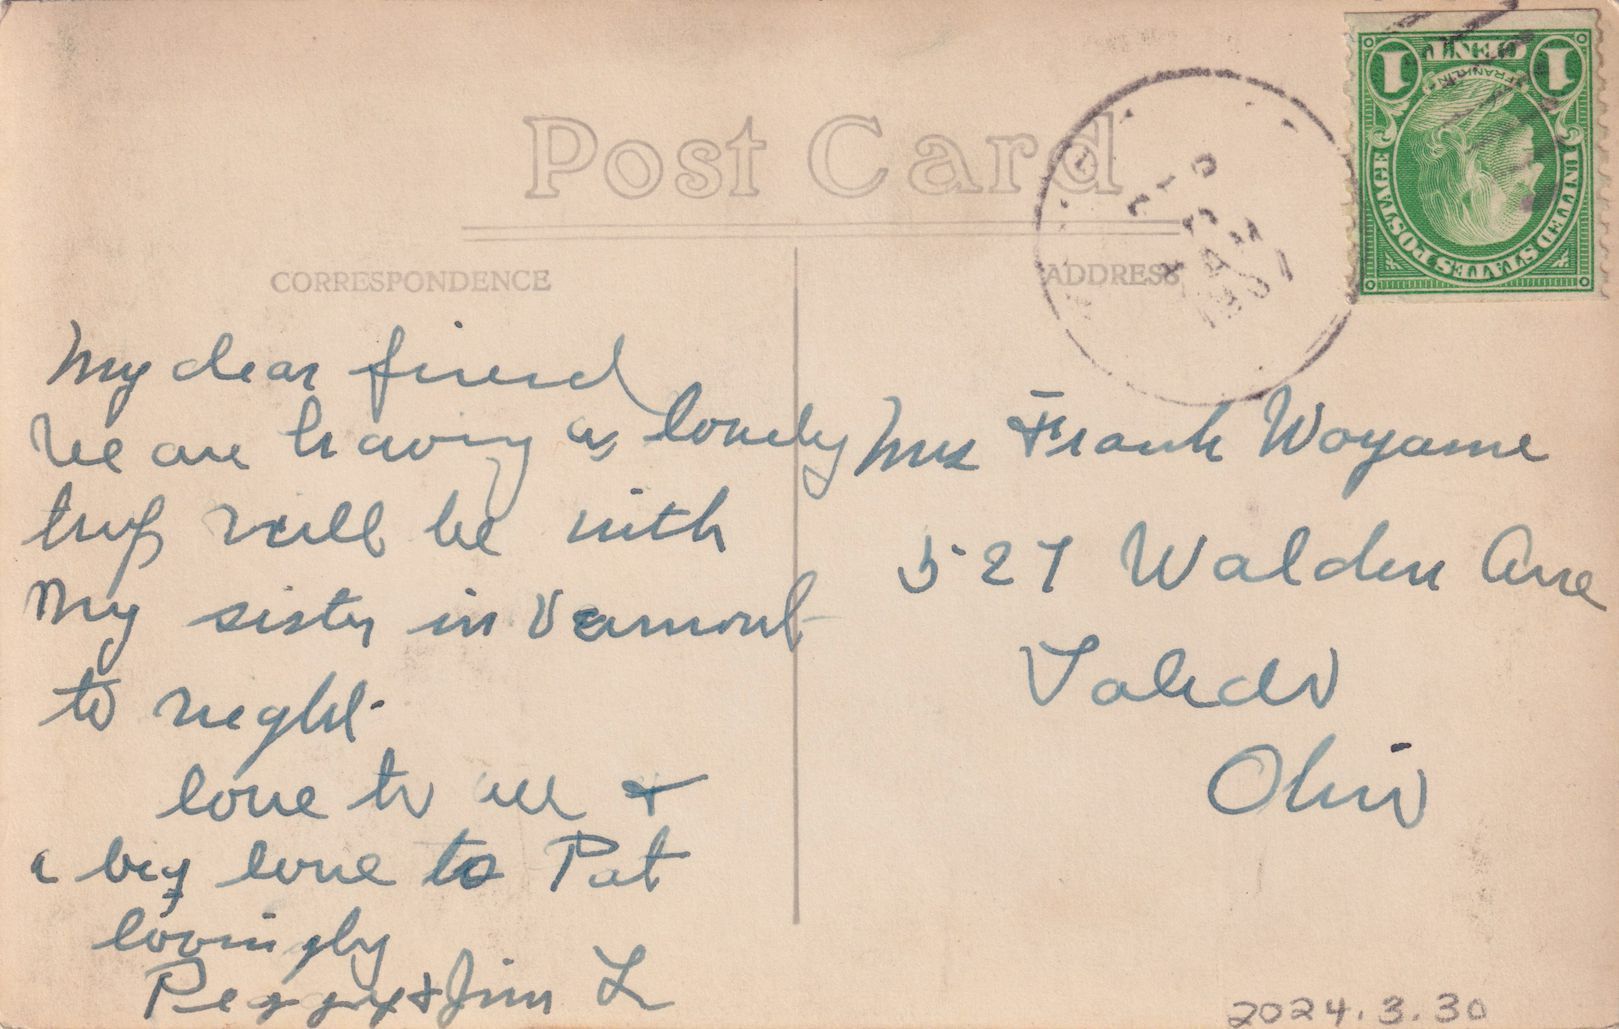 Post Card
CORRESPONDENCE
ADDRESS
1 CENT 1
FRANKLIN
UNITED STATES POSTAGE
AM
1937
My dear friend
We are having a lovely
trip will be with
my sister in Vermont
to night.
love to all &
a big love to Pat
lovingly
Peggy & Jim L
Mrs Frank Woyame
527 Walden Ave
Toledo
Ohio
2024.3.30